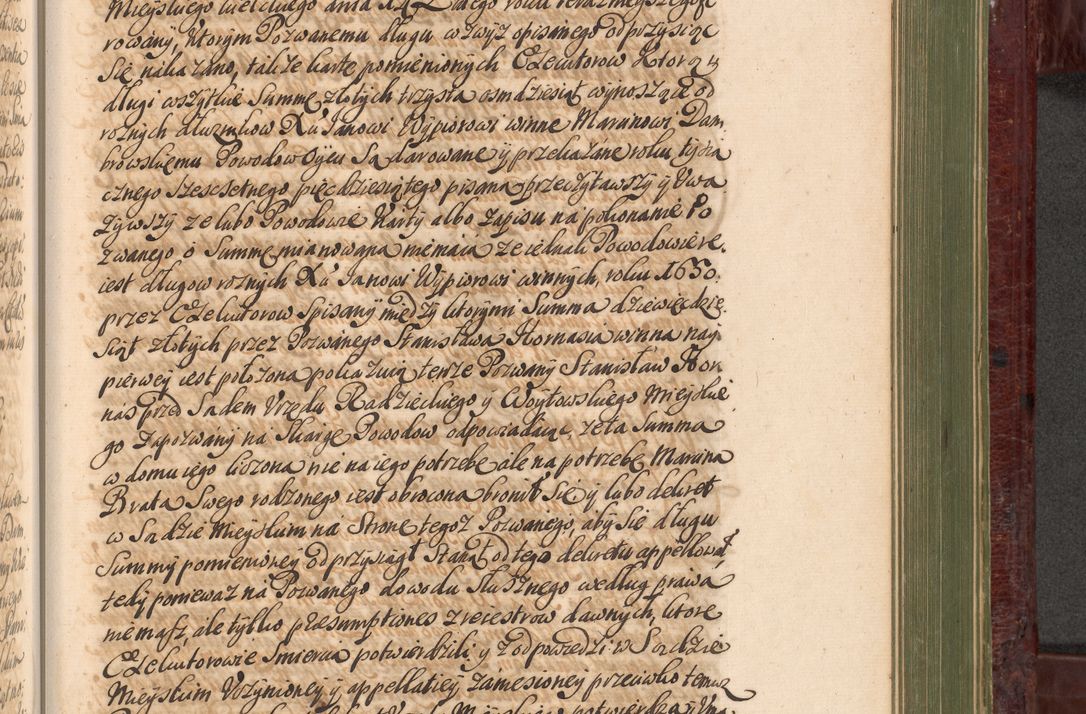 Mieyskiego Kieleckiego dnia
rowany, ktorym Pozwanemu długu wzwyż opisanego odprzysiąc
Się nakazano, także karte pomienionych Exekutorow Ktorzy
długi wszytkie Summę złotych trzysta osmdziesiąt wynoszące od
roznych dłuznikow X. Janowi Wypiorowi winne Marcinowi Dam
browskiemu Powodow Oycu Są darowane y przekazane roku tysią
cznego Szescsetnego pięcdziesiątego pisaną przeczytawszy y Uwa
zywszy ze lubo Powodowie Karty albo zapisu na pokonanie Po
zwanego o Summę mianowaną nie maią ze iednak Powodowie re.
iest długow roznych X. Janowi Wypiorowi winnych, roku 1650.
przez Exekutorow Spisany między ktorymi Summa dziewięcdzie
siąt złotych przez Pozwanego Stanisława Hornasia winna nay
pierwey iest położona pokazuią tenże Pozwany Stanisław Hor
nas przed Sądem Urzędu Radzieckiego y Woytowskiego Mieyskie
go Zapozwany na Skargę Powodow odpowiadaiąc, ze ta Summa
w domu iego liczona nie na iego potrzebę ale na potrzebę Marcina
Brata Swego rodzonego iest obrocona bronił Się y lubo dekret
w Sądzie Mieyskim na Stronę tegoż Pozwanego, aby Się długu
Summy pomienioney odprzysiągł Stanął od tego dekretu appellował
tedy ponieważ na Pozwanego dowodu Słusznego według prawa
nie masz, ale tylko praesumptiones z reiestrow dawnych, ktore
Exekutorowie Smiercią potwierdzili y z odpowiedzi w Sądzie
Mieyskim Uczynioney y appellatiey zaniesioney przeciwko temuż